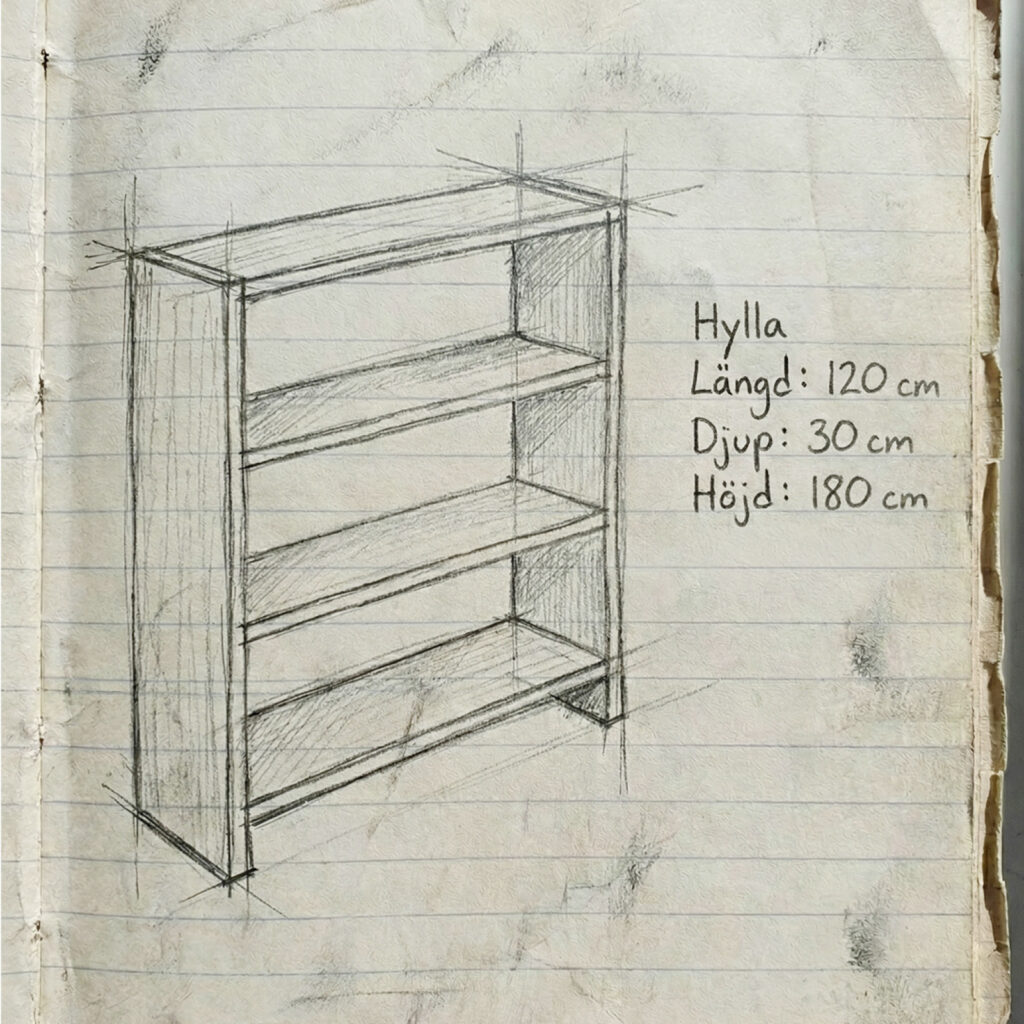 Hylla
Längd: 120 cm
Djup: 30 cm
Höjd: 180 cm